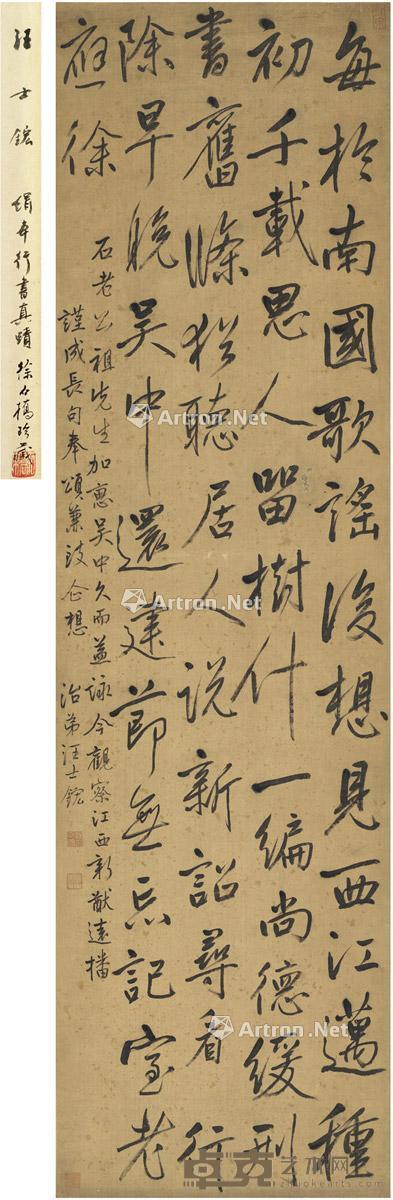 每於南國歌謠後想見西江邁種
初千載思人留樹什一編尚德緩刑
書舊條猶聽居人說新詔尋看行
除早晚吳中還建節無忘記室老
應徐
石老公祖先生加惠吳中久而益詠今觀察江西新猷遠播
謹成長句奉頌兼致企想
治弟汪士鋐
汪士鋐 絹本行書真蹟 徐橋珍藏
Artron.Net
Artron.Net
Artron.Net
Artron.Net
Artron.Net
卓克艺术网